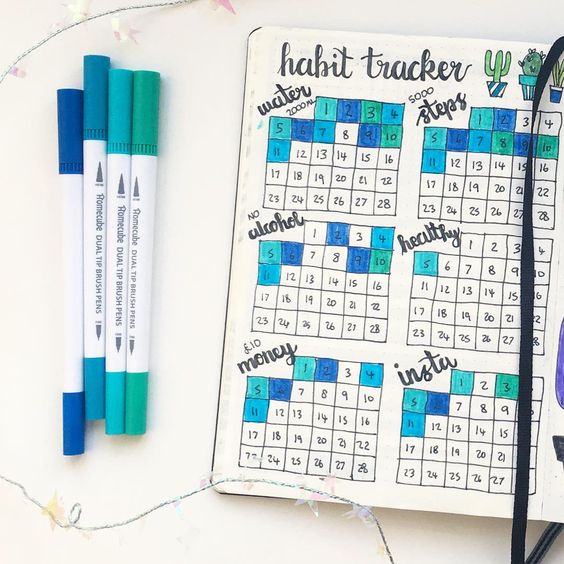 habit tracker
water
2000ML
1 2 3 4
5 6 7 8 9 10
11 12 13 14 15 16
17 18 19 20 21 22
23 24 25 26 27 28
5000
steps
1 2 3 4
5 6 7 8 9 10
11 12 13 14 16
17 18 19 20 22
23 24 25 26 28
NO
alcohol
1 2 3 4
5 6 7 8 9 10
11 12 13 14 15 16
17 18 19 20 21 22
23 24 25 26 27 28
healthy
1 2 3 4
5 6 7 8 10
11 12 13 14 16
17 18 19 20 22
23 24 25 26 28
£10
money
1 2 3 4
5 6 7 8 9 10
11 12 13 14 15 16
17 18 19 20 21 22
23 24 25 26 27 28
insta
1 2 3
5 6 7 8 9
11 12 13 14 15
17 18 19 20 21
23 24 25 26 27
Homecube DUAL TIP BRUSH PENS
Homecube DUAL TIP BRUSH PENS
Homecube DUAL TIP BRUSH PENS